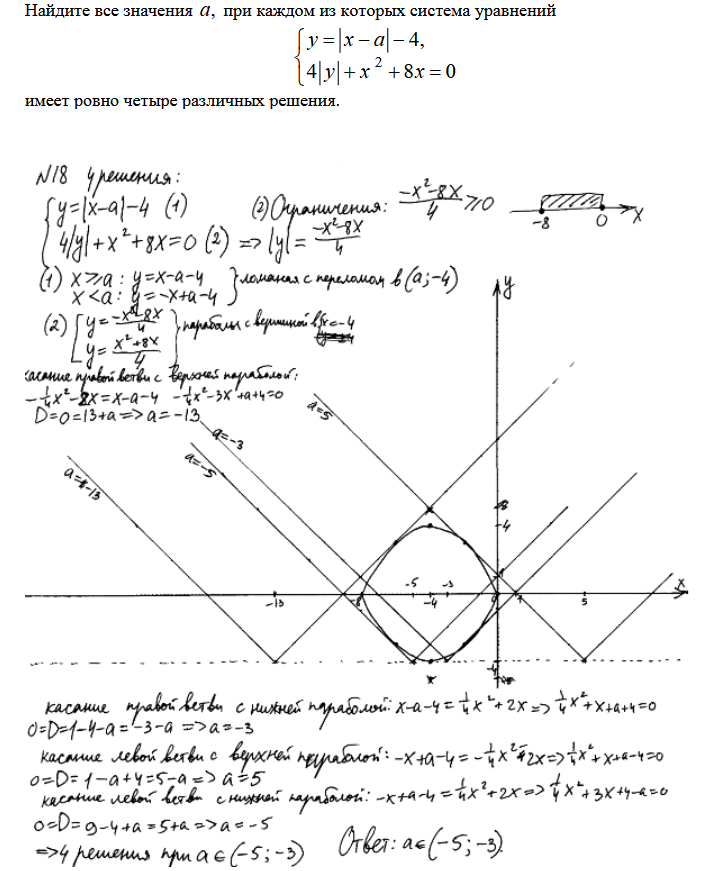 Найдите все значения a, при каждом из которых система уравнений
{ y = |x − a| − 4,
4|y| + x² + 8x = 0
имеет ровно четыре различных решения.
N18 4 решения:
{ y=|x-a|-4 (1)
4|y|+x²+8x=0 (2) => |y|= (-x²-8x)/4
(2) Ограничения: (-x²-8x)/4 ⩾0
-8 0 x
(1) x⩾a: y=x-a-4
x<a: y=-x+a-4 } ломаная с переломом в (a;-4)
(2) [ y= (-x²-8x)/4
y= (x²+8x)/4 } параболы с вершиной в x=-4
касание правой ветви с верхней параболой:
-¼x²-2x=x-a-4 -¼x²-3x+a+4=0
D=0=13+a => a=-13
y
a=5
a=-3
a=-5
a=-13
-4
-5 -3 x
-13 -8 -4 0 5
-4
касание правой ветви с нижней параболой: x-a-4=¼x²+2x=>¼x²+x+a+4=0
0=D=1-4-a=-3-a =>a=-3
касание левой ветви с верхней параболой: -x+a-4=-¼x²-2x=>¼x²+x+a-4=0
0=D=1-a+4=5-a=>a=5
касание левой ветви с нижней параболой: -x+a-4=¼x²+2x=>¼x²+3x+4-a=0
0=D=9-4+a=5+a=>a=-5
=>4 решения при a∈(-5;-3) Ответ: a∈(-5;-3).